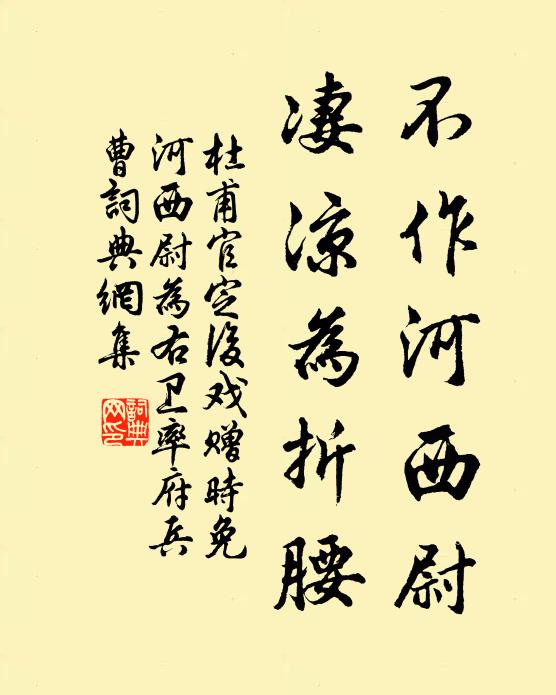 不作河西尉
凄凉為折腰
杜甫官定後戏赠時免
河西尉為右卫率府兵
曹詞典網集
詞典網印